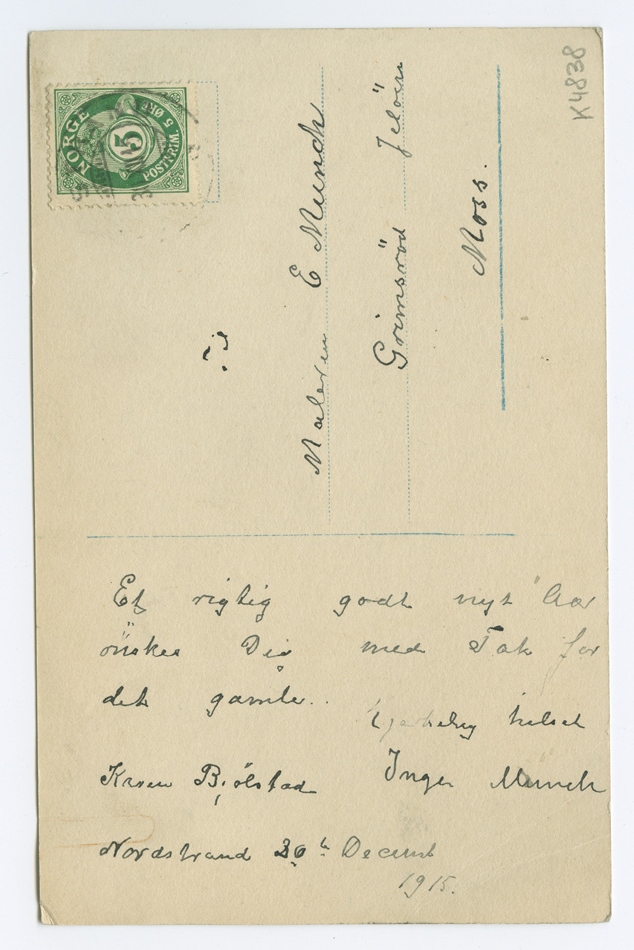 K4838
NORGE
POSTFRIM. 5 ØRE
5
Maleren E Munch
Grimsröd Jelöen
Moss.
Et rigtig godt nyt Aar
önskes Dig med Tak for
det gamle..
Hjertelig hilset
Karen Bjölstad Inger Munch
Nordstrand 30te Decemb
1915.